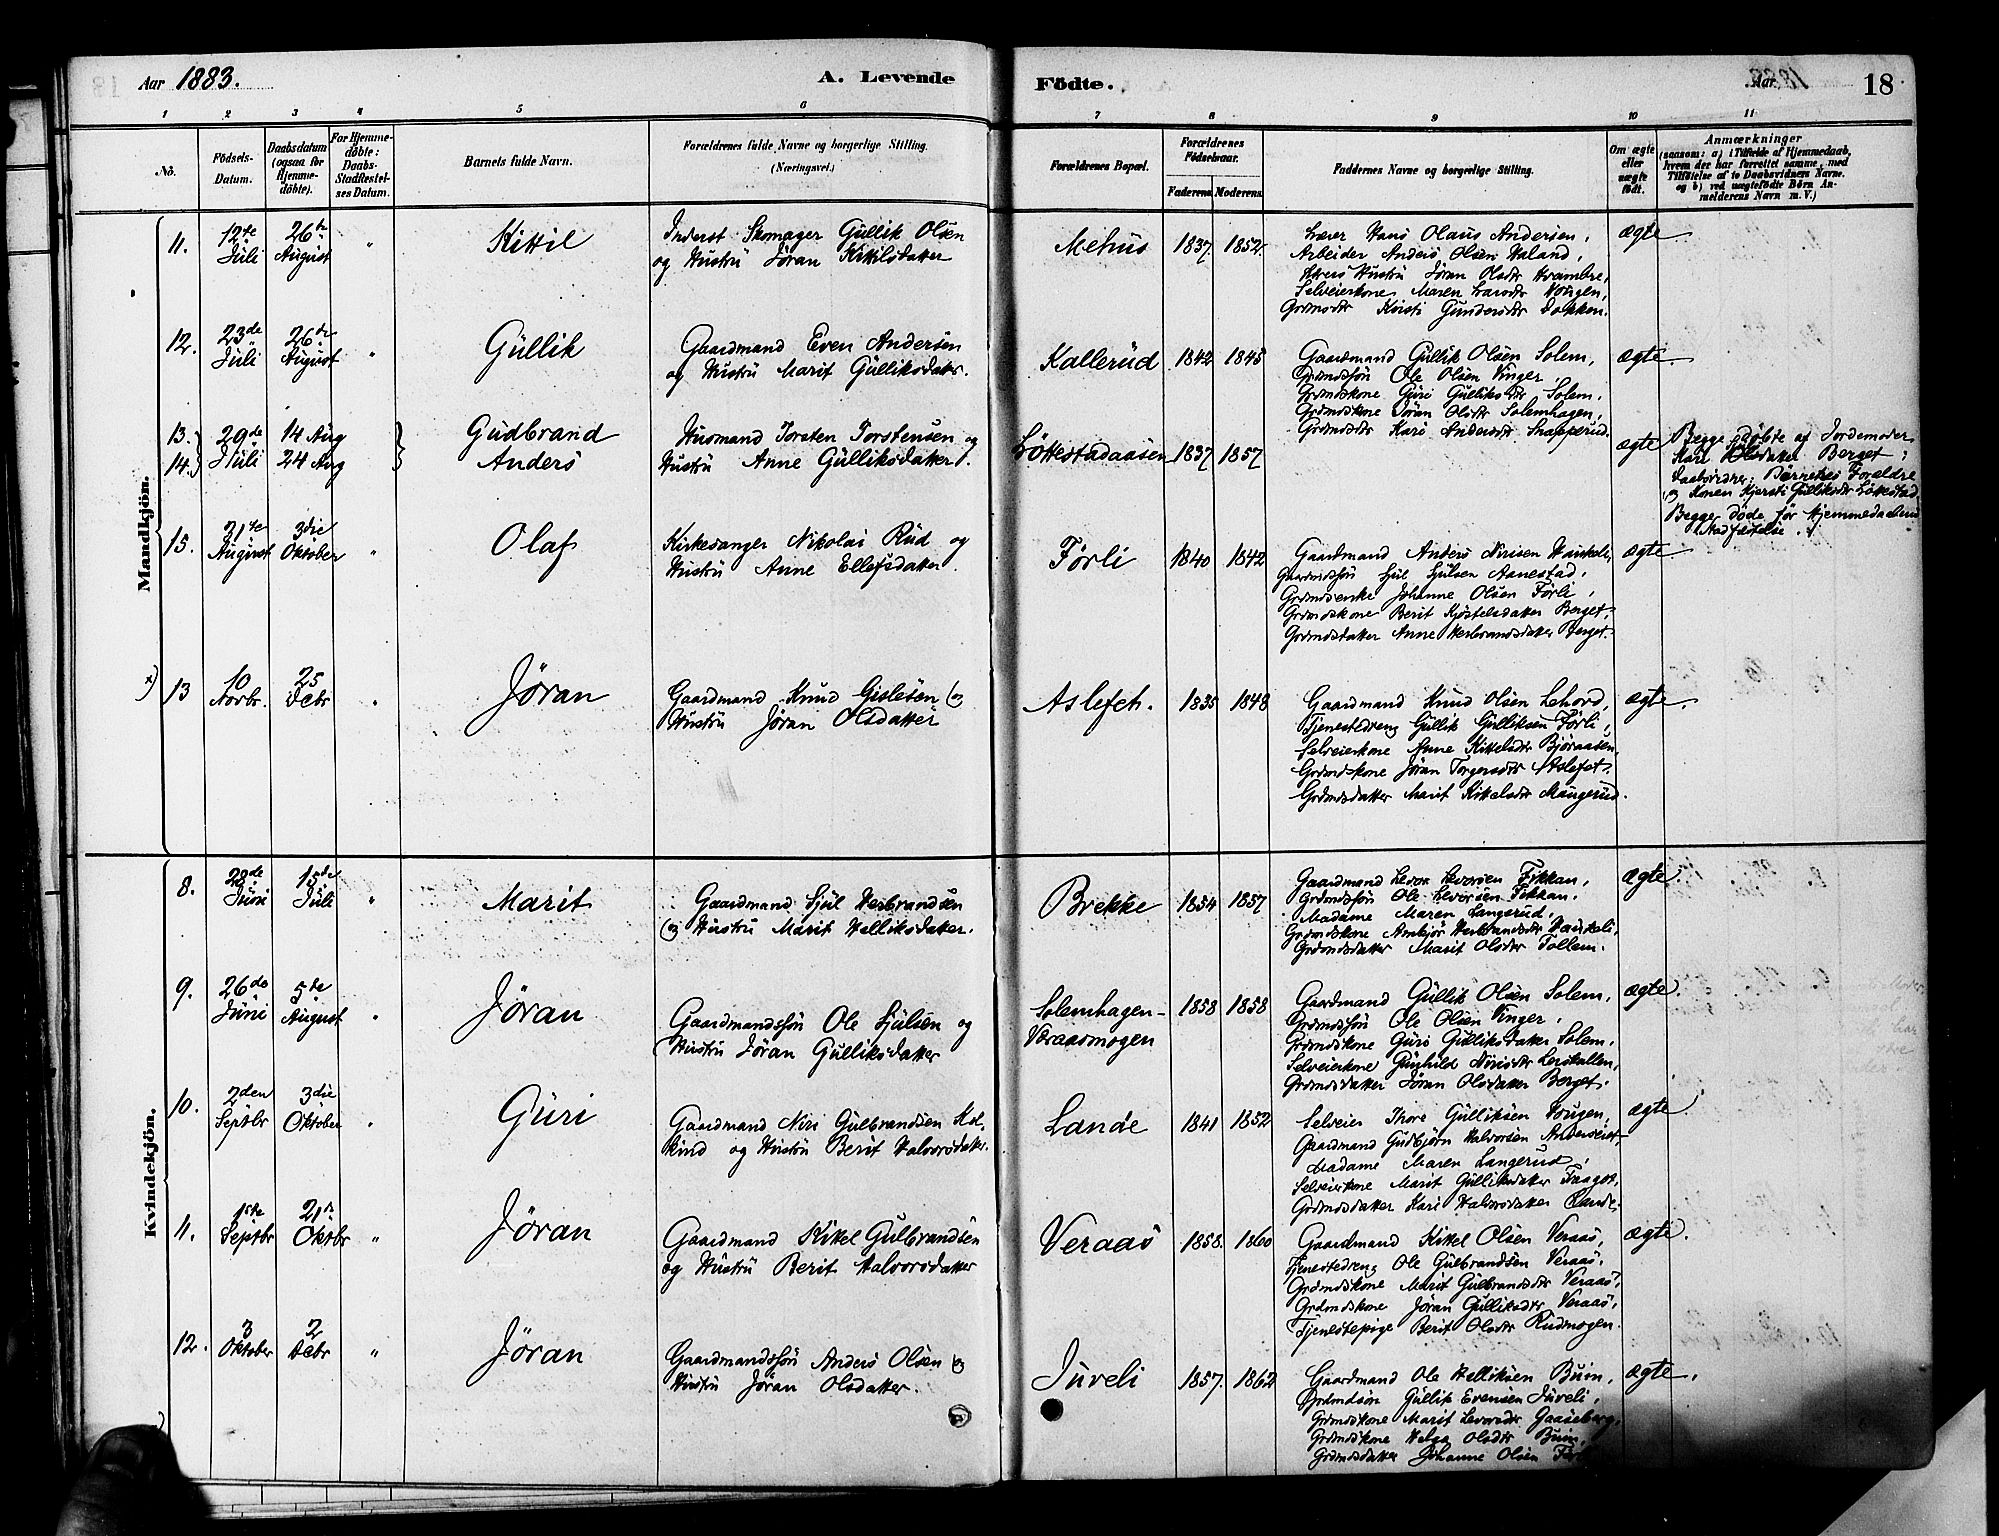 Aar 1883.
A. Levende
Födte.
Aar
18
1 2 3 4 5 6 7 8 9 10 11
No.
Födsels-
Datum.
Daabsdatum
(ogsaa for
Hjemme-
döbte).
For Hjemme-
döbte:
Daabs-
Stadfæstel-
ses Datum.
Barnets fulde Navn.
Forældrenes fulde Navne og borgerlige Stilling.
(Næringsvei.)
Forældrenes Bopæl.
Forældrenes
Födselsaar.
Faderens Moderens
Faddernes Navne og borgerlige Stilling.
Om ægte
eller
uægte
födt.
Anmærkninger
(saasom: a) i Tilfælde af Hjemmedaab,
hvem der har forrettet samme, med
Tilföielse af to Daabsvidners Navne.
og b) ved uægtefödte Börn An-
melderens Navn m. V.)
Mandkjön.
11. 12te Juli 26de August " Kittil
Inderst Skomager Gullik Olsen
og Hustru Jöran Kittilsdatter
Mehus 1837. 1852.
Lærer Hans Olaus Andersen,
Arbeider Anders Olsen Haland,
Hustru Jöran Olsdtr
Selveierkone Maren Larsdtr Haugen,
Grdmsdtr Kirsti Gundersdtr Dokken.
ægte
12. 23de Juli 26de August " Gullik
Gaardmand Even Andersen
og Hustru Marit Gulliksdatter.
Kallerud 1842 1845
Gaardmand Gullik Olsen Solem,
Grdmdssön Ole Olsen Vinger
Grdmdskone Guri Gulliksdtr Solem,
Grdmdskone Jöran Olsdtr Solemhagen,
Grdmdsdtr Kari Andersdtr Snapperud.
ægte
13. 29de 14 Aug Gudbrand
14. Juli 24 Aug Anders
Husmand Torsten Torstensen og
Hustru Anne Gulliksdatter.
Löttestadaasen 1837 1857
ægte
Begge döbte af Jordemoder
Kari Olsdatter Berget;
Daabsvidner: Börnenes Forældre
og Konen Kjersti Gulliksdtr Löttestad.
Begge döde för Hjemmedaabens
Stadfæstelse.
15. 21te August 3die Oktober " Olaf
Kirkesanger Nikolai Rud og
Hustru Anne Ellefsdatter.
Förli 1840 1842
Gaardmand Anders Nirisen
Gaardmdssön Sjul Sjulsen Aanestad,
Grdmdsenke Johanne Olsen Förli,
Grdmdskone Berit Kjöstelsdatter Berget,
Grdmdsdatter Anne Herbrandsdatter Berget.
ægte
x) 13 10 Novbr. 25 Debr " Jöran
Gaardmand Knud Gislesen og
Hustru Jöran Olsdatter
Aslefet. 1835 1848
Gaardmand Knud Olsen
Tjenestedreng Gullik Gulliksen Förli,
Selveierkone Anne Kittelsdtr Björaasen,
Grdmdskone Jöran Torgersdtr Aslefet.
Grdmdsdatter Marit Kittelsdtr Mangerud.
ægte
Kvindekjön.
8. 22de Juni 15de Juli " Marit
Gaardmand Sjul Herbrandsen
og Hustru Marit Helliksdatter.
Brekke 1854 1857
Gaardmand Levor Levorsen Fikkan,
Grdmdssön Ole Levorsen Fikkan.
Madame Maren Langerud,
Grdmdskone Herbrandsdtr
Grdmdsdatter Marit Olsdtr Tollem.
ægte
9. 26de Juni 5te August " Jöran
Gaardmandssön Ole Sjulsen og
Hustru Jöran Gulliksdatter
Solemhagen-
Veraasmogen 1858 1858
Gaardmand Gullik Olsen Solem,
Grdmdssön Ole Olsen Vinger,
Grdmdskone Guri Gulliksdatter Solem,
Selveierkone Gunhild Nirisdtr
Grdmdsdatter Jöran Olsdatter Berget.
ægte.
10. 2den Septbr 3die Oktober " Guri
Gaardmand Niri Gulbrandsen Kol-
kind og Hustru Berit Halvorsdatter.
Lande 1841 1852
Selveier Thore Gulliksen Haugen,
Gaardmand Gudbjörn Halvorsen
Madame Maren Langerud,
Selveierkone Marit Gulliksdatter
Grdmdsdatter Kari Halvorsdatter Lande,
ægte.
11. 1ste Septbr 21de Oktbr " Jöran
Gaardmand Kittel Gulbrandsen
og Hustru Berit Halvorsdatter
Veraas 1858. 1860
Gaardmand Kittel Olsen Veraas,
Tjenestedreng Ole Gulbrandsen Veraas,
Grdmdskone Marit Gulbrandsdtr Veraas,
Grdmdskone Jöran Gulliksdtr Veraas,
Tjenestepige Berit Olsdtr Rudmogen.
ægte.
12. 3 Oktober 2 Debr " Jöran
Gaardmandssön Anders Olsen og
Hustru Jöran Olsdatter.
Juveli 1857. 1862
Gaardmand Ole Helliksen Buin,
Grdmdssön Gullik Evensen Juveli,
Grdmdskone Marit Levorsdtr Gaaseberg,
Grdmdskone Helga Olsdtr Buin,
Grdmdsdatter Johanne Olsen
ægte.